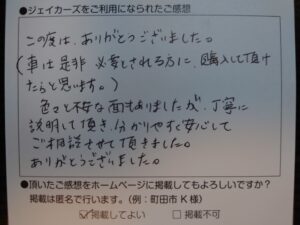 ●ジェイカーズをご利用になられたご感想
この度は、ありがとうございました。
(車は是非 必要とされる方に、購入して頂け
たらと思います。)
色々と不安な面もありましたが、丁寧に
説明して頂き、分かりやすく安心して
ご相談させて頂きました。
ありがとうございました。
●頂いたご感想をホームページに掲載してもよろしいですか?
掲載は匿名で行います。(例:町田市 K 様)
☑掲載してよい □掲載不可